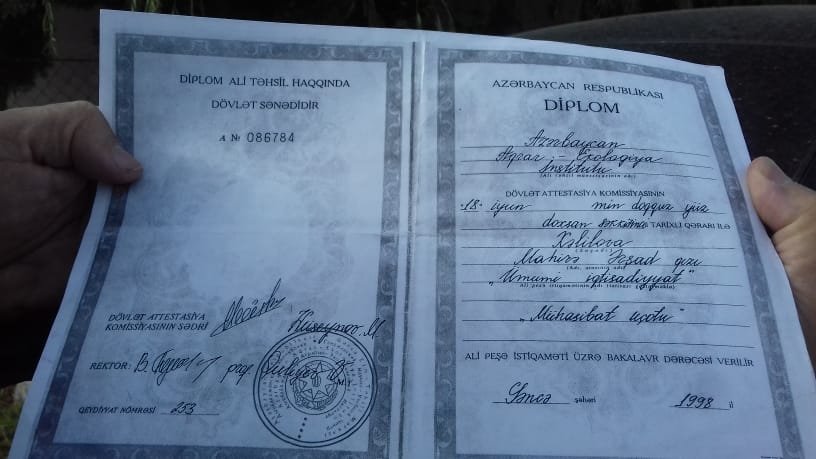 DİPLOM ALİ TƏHSİL HAQQINDA
DÖVLƏT SƏNƏDİDİR
A № 086784
DÖVLƏT ATTESTASİYA
KOMİSSİYASININ SƏDRİ
Hüseynov M
REKTOR: B. prof.
M.Y.
QEYDİYYAT NÖMRƏSİ 253
AZƏRBAYCAN RESPUBLİKASI
DİPLOM
Azərbaycan
Aqrar - Ekologiya
İnstitutu
(Ali təhsil müəssisəsinin adı)
DÖVLƏT ATTESTASİYA KOMİSSİYASININ
"18" iyun min doqquz yüz
doxsan səkkiz TARİXLİ QƏRARI İLƏ
Xəlilova
(Soyadı)
Mahirə Əsəd qızı
(Adı, atasının adı)
"Ümumi iqtisadiyyat"
"Mühasibat uçotu"
ALİ PEŞƏ İSTİQAMƏTİ ÜZRƏ BAKALAVR DƏRƏCƏSİ VERİLİR
Gəncə şəhəri 1998 il